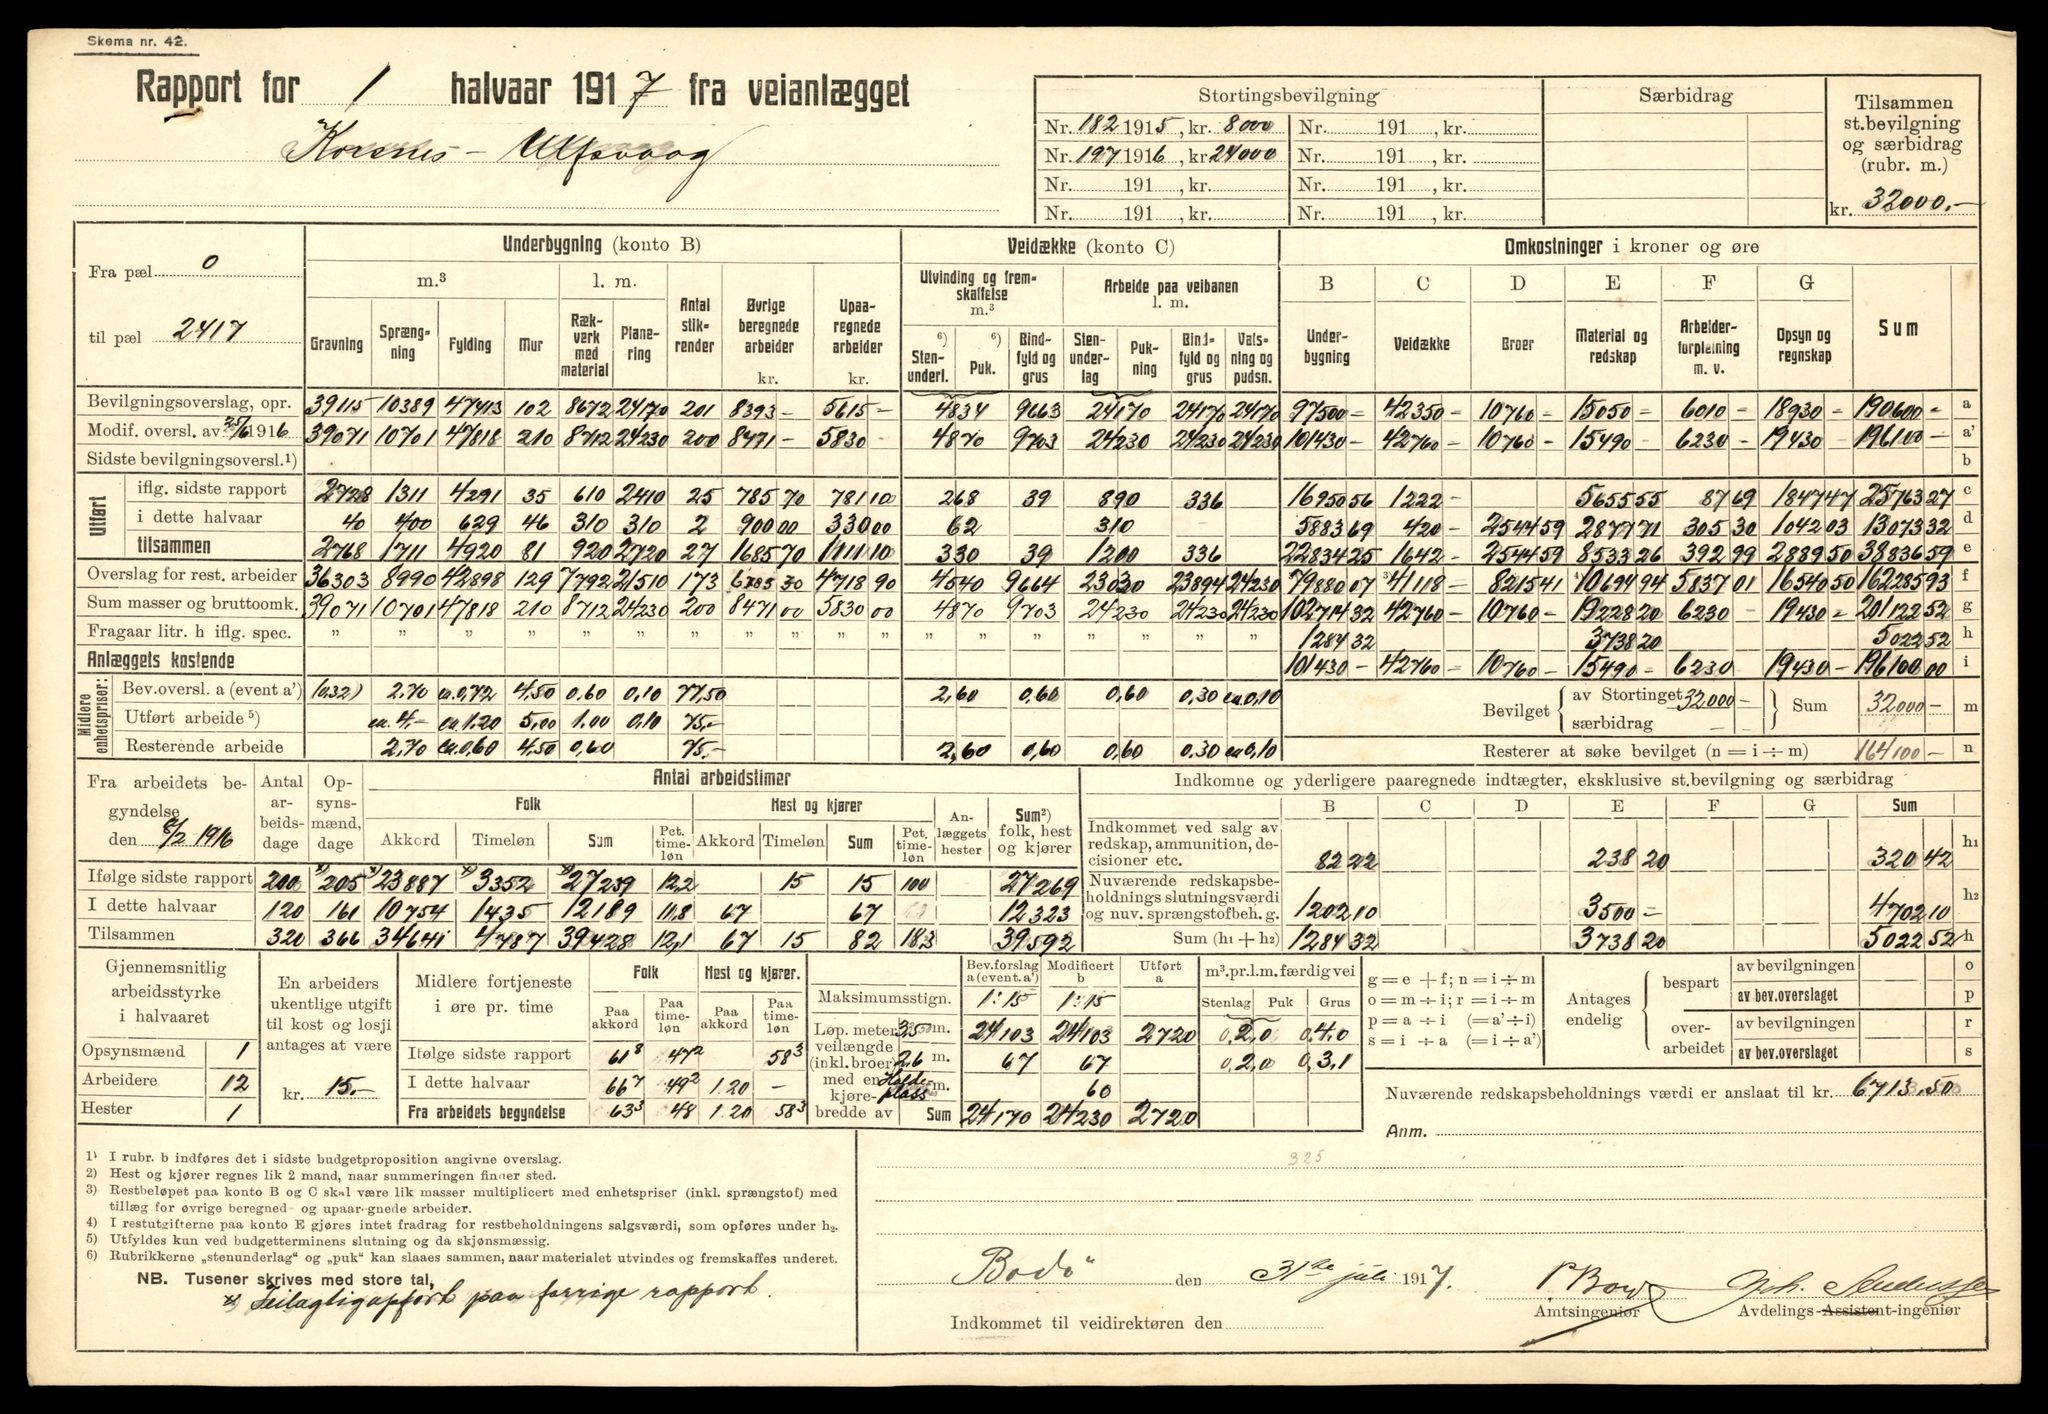 Skema nr. 42.
Rapport for 1 halvaar 1917 fra veianlægget
Korsnes - Ulfsvaag
Stortingsbevilgning | Særbidrag | Tilsammen st.bevilgning og særbidrag (rubr. m.)
Nr. 182 1915, kr. 8000 | Nr. 191 , kr.
Nr. 197 1916, kr. 24000 | Nr. 191 , kr.
Nr. 191 , kr. | Nr. 191 , kr.
Nr. 191 , kr. | Nr. 191 , kr. | kr. 32000.-
Fra pæl 0
til pæl 2417
Underbygning (konto B) | Veidække (konto C) | Omkostninger i kroner og øre
m.³ | l. m. | Antal stikrender | Øvrige beregnede arbeider kr. | Upaaregnede arbeider kr. | Utvinding og fremskaffelse m.³ | Arbeide paa veibanen l. m. | B | C | D | E | F | G | Sum
Gravning | Sprængning | Fylding | Mur | Rækverk med material | Planering | ⁶) Stenunderl. | ⁶) Puk. | Bindfyld og grus | Stenunderlag | Pukning | Bindfyld og grus | Valsning og pudsn. | Underbygning | Veidække | Broer | Material og redskap | Arbeiderforpleining m. v. | Opsyn og regnskap
Bevilgningsoverslag, opr. | 39115 | 10389 | 47413 | 102 | 8672 | 24170 | 201 | 8393 - | 5615 - | 4834 | 9663 | 24170 | 24170 | 24170 | 97500 - | 42350 - | 10760 - | 15050 - | 6010 - | 18930 - | 190600 - | a
Modif. oversl. av 25/6 1916 | 39071 | 10701 | 47818 | 210 | 8712 | 24230 | 200 | 8471 - | 5830 - | 4870 | 9703 | 24230 | 24230 | 24230 | 101430 - | 42760 - | 10760 - | 15490 - | 6230 - | 19430 - | 196100 - | a'
Sidste bevilgningsoversl.¹) | b
Utført
iflg. sidste rapport | 2728 | 1311 | 4291 | 35 | 610 | 2410 | 25 | 785 70 | 781 10 | 268 | 39 | 890 | 336 | 16950 56 | 1222 - | 5655 55 | 87 69 | 1847 47 | 25763 27 | c
i dette halvaar | 40 | 400 | 629 | 46 | 310 | 310 | 2 | 900 00 | 330 00 | 62 | 310 | 5883 69 | 420 - | 2544 59 | 2877 71 | 305 30 | 1042 03 | 13073 32 | d
tilsammen | 2768 | 1711 | 4920 | 81 | 920 | 2720 | 27 | 1685 70 | 1111 10 | 330 | 39 | 1200 | 336 | 22834 25 | 1642 - | 2544 59 | 8533 26 | 392 99 | 2889 50 | 38836 59 | e
Overslag for rest. arbeider | 36303 | 8990 | 42898 | 129 | 7792 | 21510 | 173 | 6785 30 | 4718 90 | 4540 | 9664 | 23030 | 23894 | 24230 | 79880 07 | 41118 - | 8215 41 | 10694 94 | 5837 01 | 16540 50 | 162285 93 | f
Sum masser og bruttoomk. | 39071 | 10701 | 47818 | 210 | 8712 | 24230 | 200 | 8471 00 | 5830 00 | 4870 | 9703 | 24230 | 24230 | 24230 | 102714 32 | 42760 - | 10760 - | 19228 20 | 6230 - | 19430 - | 201122 52 | g
Fragaar litr. h iflg. spec. | " | " | " | " | " | " | " | " | " | " | " | " | " | " | " | " | " | " | 1284 32 | 3738 20 | 5022 52 | h
Anlæggets kostende | 101430 - | 42760 - | 10760 - | 15490 - | 6230 - | 19430 - | 196100 00 | i
Midlere enhetspriser:
Bev.oversl. a (event a') | (0.32) | 2.70 | ca.0,72 | 4.50 | 0,60 | 0,10 | 77,50 | 2,60 | 0,60 | 0,60 | 0,30 | ca.0,10
Utført arbeide ⁵) | ca. 4.- | ca 1.20 | 5,00 | 1.00 | 0,10 | 75.-
Resterende arbeide | 2.70 | ca.0,60 | 4.50 | 0,60 | 75.- | 2,60 | 0,60 | 0,60 | 0.30 | ca 0.10
Bevilget { av Stortinget 32000 - særbidrag } Sum 32000 - | m
Resterer at søke bevilget (n = i ÷ m) 164100 - | n
Fra arbeidets begyndelse den 8/2 1916
Antal arbeidsdage | Opsynsmænd, dage | Antal arbeidstimer
Folk | Hest og kjører | Anlæggets hester | Sum²) folk, hest og kjører
Akkord | Timeløn | Sum | Pct. timeløn | Akkord | Timeløn | Sum | Pct. timeløn
Ifølge sidste rapport | 200 | 205 | 23887 | 3352 | 27239 | 12,2 | 15 | 15 | 100 | 27269
I dette halvaar | 120 | 161 | 10754 | 1435 | 12189 | 11,8 | 67 | 67 | 12323
Tilsammen | 320 | 366 | 34641 | 4787 | 39428 | 12,1 | 67 | 15 | 82 | 18.3 | 39592
Indkomne og yderligere paaregnede indtægter, eksklusive st.bevilgning og særbidrag
B | C | D | E | F | G | Sum
Indkommet ved salg av redskap, ammunition, decisioner etc. | 82 22 | 238 20 | 320 42 | h1
Nuværende redskapsbeholdnings slutningsværdi og nuv. sprængstofbeh. g. | 1202 10 | 3500 - | 4702 10 | h2
Sum (h1 + h2) | 1284 32 | 3738 20 | 5022 52 | h
Gjennemsnitlig arbeidsstyrke i halvaaret
Opsynsmænd 1
Arbeidere 12
Hester 1
En arbeiders ukentlige utgift til kost og losji antages at være
kr. 15.-
Midlere fortjeneste i øre pr. time | Folk | Hest og kjører.
Paa akkord | Paa timeløn | Paa akkord | Paa timeløn
Ifølge sidste rapport | 61⁸ | 47² | 58³
I dette halvaar | 66⁷ | 49² | 1.20 | -
Fra arbeidets begyndelse | 63³ | 48 | 1.20 | 58³
Bev.forslag a (event. a') | Modificert b | Utført a | m³.pr.l.m. færdig vei
Stenlag | Puk | Grus
Maksimumsstign. | 1:15 | 1:15
Løp. meter veilængde (inkl. broer) med en kjørebredde av
3.50 m. | 24103 | 24103 | 2720 | 0.2.0 | 0.4.0
2,6 m. | 67 | 67 | 0.2.0 | 0.3.1
Holdeplass m. | 60
Sum | 24170 | 24230 | 2720
g = e + f; n = i ÷ m
o = m ÷ i; r = i ÷ m
p = a ÷ i (= a' ÷ i)
s = i ÷ a (= i ÷ a')
Antages endelig { bespart { av bevilgningen | o
av bev.overslaget | p
overarbeidet { av bevilgningen | r
av bev.overslaget | s
Nuværende redskapsbeholdnings værdi er anslaat til kr. 6713.50
Anm.
325
1) I rubr. b indføres det i sidste budgetproposition angivne overslag.
2) Hest og kjører regnes lik 2 mand, naar summeringen finder sted.
3) Restbeløpet paa konto B og C skal være lik masser multiplicert med enhetspriser (inkl. sprængstof) med
tillæg for øvrige beregned- og upaaregnede arbeider.
4) I restutgifterne paa konto E gjøres intet fradrag for restbeholdningens salgsværdi, som opføres under h₂.
5) Utfyldes kun ved budgetterminens slutning og da skjønsmæssig.
6) Rubrikkerne „stenunderlag" og „puk" kan slaaes sammen, naar materialet utvindes og fremskaffes underet.
NB. Tusener skrives med store tal.
x) Feilagtig opført paa forrige rapport.
Bodö den 31te juli 1917.
Amtsingeniør
Avdelings-Assistent-ingeniør
Indkommet til veidirektøren den